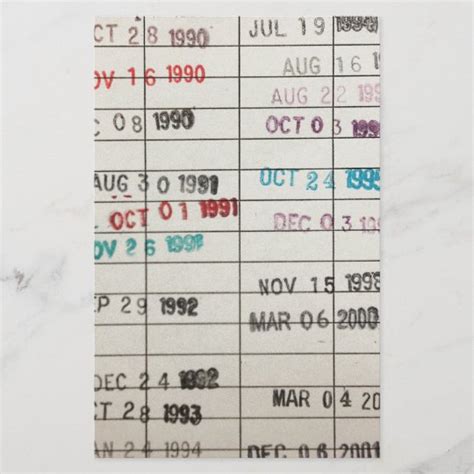 CT 28 1990
OV 16 1990
C 08 1990
AUG 30 1991
OCT 01 1991
OV 26 1991
EP 29 1992
DEC 24 1992
CT 28 1993
AN 24 1994
JUL 19
AUG 16 19
AUG 22 199
OCT 03 199
OCT 24 1995
DEC 03 199
NOV 15 1998
MAR 06 2000
MAR 04 200
DEC 06 2001